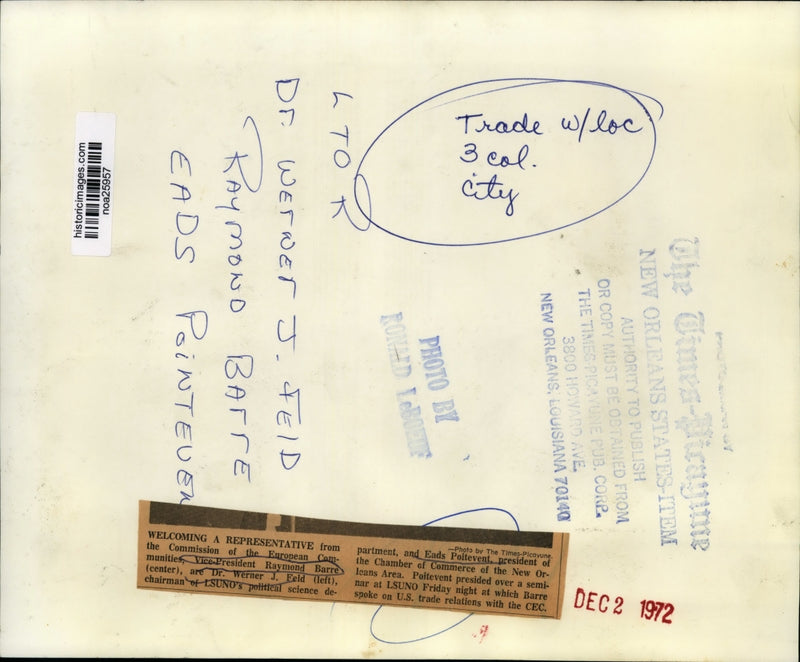 historicimages.com
noa25957
Trade w/loc
3 col.
City
L TO R
Dr. WERNER J. FEID
RAYMOND BARRE
EADS POINTEVEN
PHOTO BY
RONALD LeBOEUF
The Times-Picayune
NEW ORLEANS STATES-ITEM
AUTHORITY TO PUBLISH
OR COPY MUST BE OBTAINED FROM
THE TIMES-PICAYUNE PUB. CORP.
3800 HOWARD AVE.
NEW ORLEANS, LOUISIANA 70140
WELCOMING A REPRESENTATIVE from
the Commission of the European Com-
munities, Vice-President Raymond Barre
(center), are Dr. Werner J. Feld (left),
chairman of LSUNO's political science de-
—Photo by The Times-Picayune.
partment, and Eads Poitevent, president of
the Chamber of Commerce of the New Or-
leans Area. Poitevent presided over a semi-
nar at LSUNO Friday night at which Barre
spoke on U.S. trade relations with the CEC.
DEC 2 1972